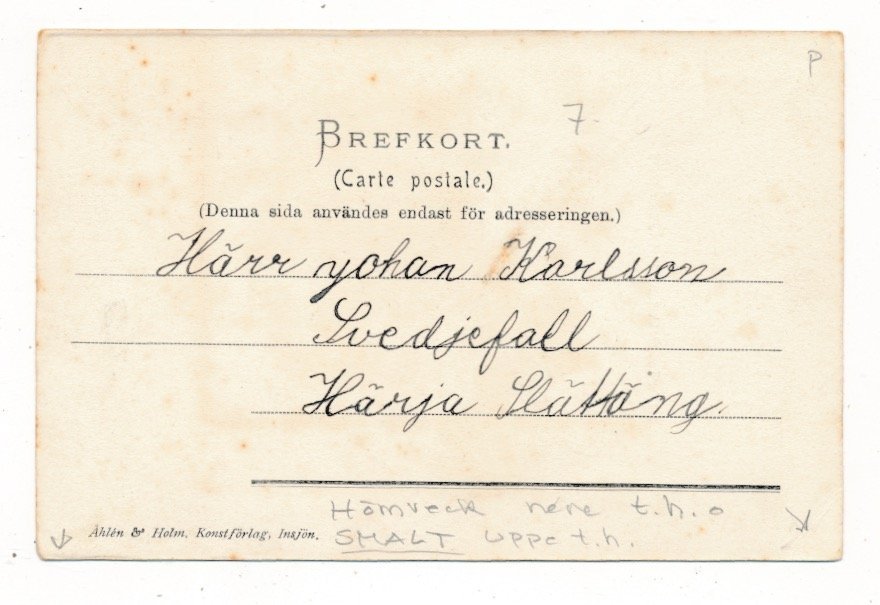 P
7
BREFKORT.
(Carte postale.)
(Denna sida användes endast för adresseringen.)
Härr yohan Karlsson
Svedjefall
Härja Slättäng.
Hörnveck nere t.h. o
SMALT uppe t.h.
Åhlén & Holm. Konstförlag, Insjön.